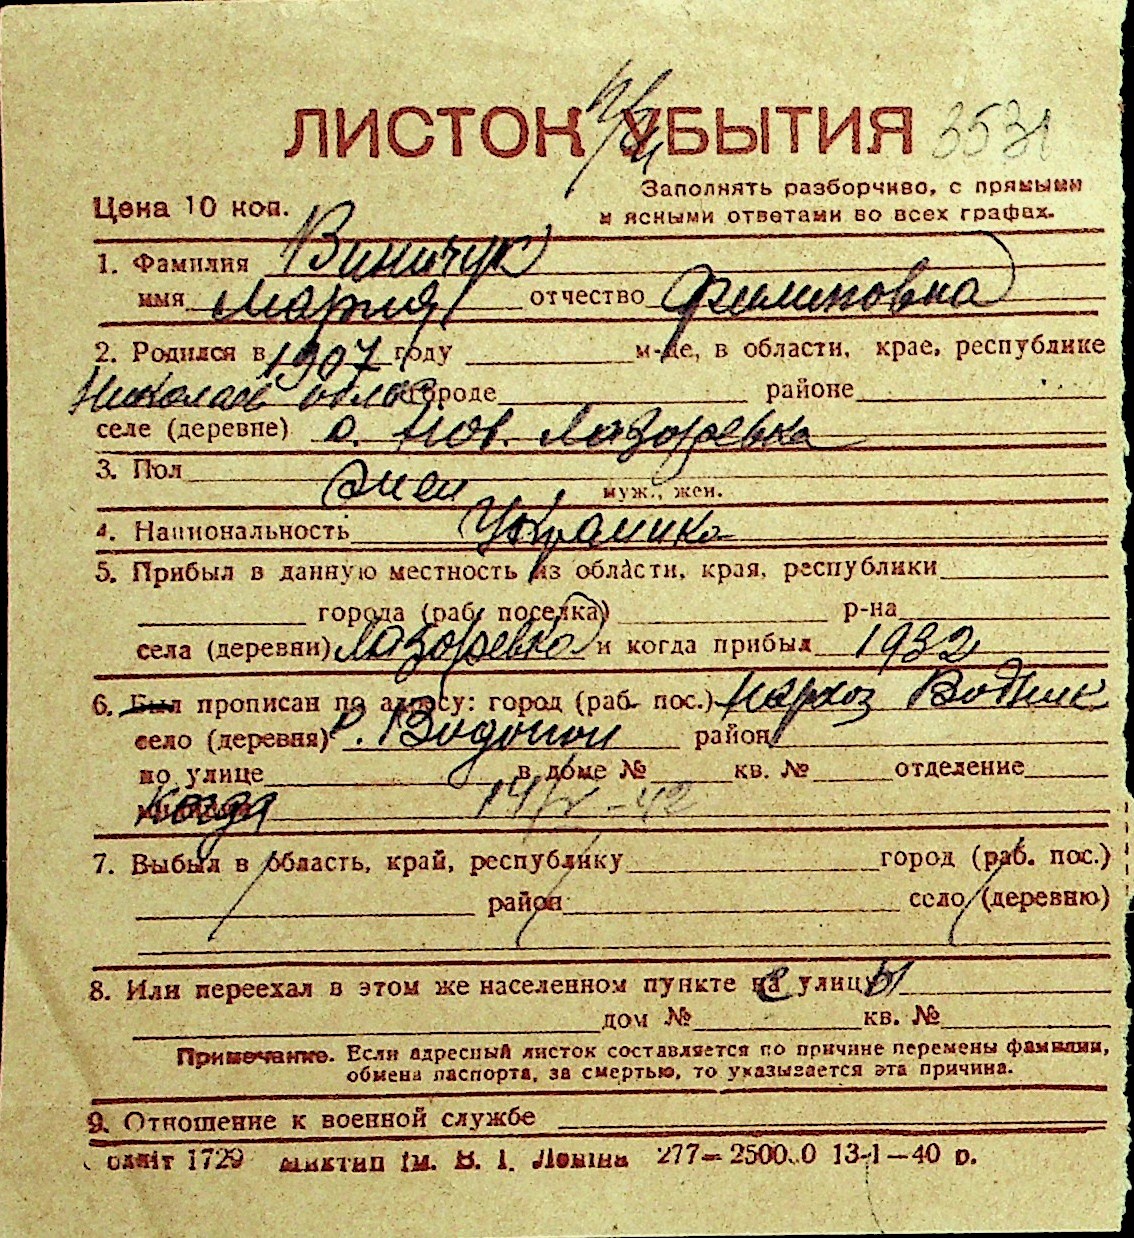 ЛИСТОК УБЫТИЯ 3531
Заполнять разборчиво, с прямыми
Цена 10 коп. и ясными ответами во всех графах.
1. Фамилия Виничук
имя Мария отчество Филиповна
2. Родился в 1907 году м-це, в области, крае, республике
Николаев облас городе районе
селе (деревне) с. Нов. Лазоревка
3. Пол жен муж., жен.
4. Национальность Украинка
5. Прибыл в данную местность из области, края, республики
города (раб. поселка) р-на
села (деревни) Лазоревка и когда прибыл 1932
6. Был прописан по адресу: город (раб. пос.) Водник
село (деревня) с. Водопой район
по улице в доме № кв. № отделение
Когда 14/V-42
7. Выбыл в область, край, республику город (раб. пос.)
район село (деревню)
8. Или переехал в этом же населенном пункте с улицы
дом № кв. №
Примечание. Если адресный листок составляется по причине перемены фамилии,
обмена паспорта, за смертью, то указывается эта причина.
9. Отношение к военной службе
1729 ім. В. І. Леніна 277— 13-1—40 р.